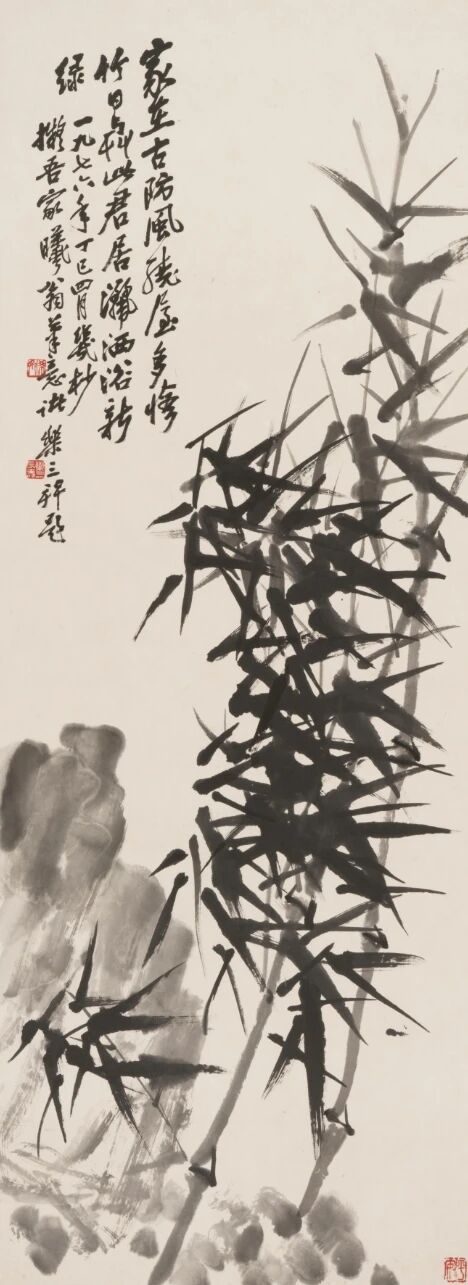 家在古防風繞屋多修
竹日與此君居瀟洒浴新
綠
一九七六年丁巳四月幾杪
擬吾家曦翁筆意諸樂三并題